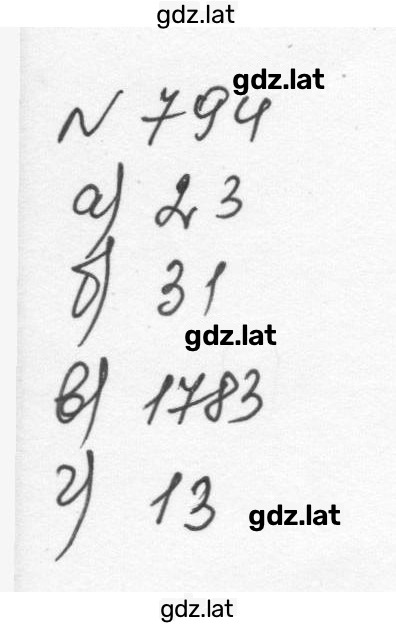 gdz.lat
gdz.lat
N 794
а) 23
б) 31
gdz.lat
в) 1783
г) 13
gdz.lat
gdz.lat